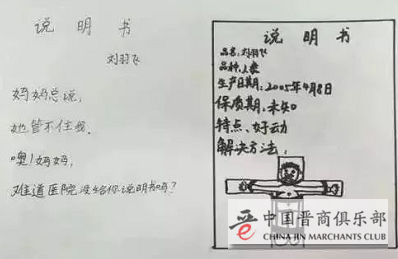 说 明 书
刘羽飞
妈妈总说,
她管不住我.
噢!妈妈,
难道医院没给你说明书吗?
说 明 书
品名:刘羽飞
品种:人类
生产日期:2005年4月8日
保质期:未知
特点:好动
解决方法:
晋 中国晋商俱乐部
CHINA JIN MERCHANTS CLUB